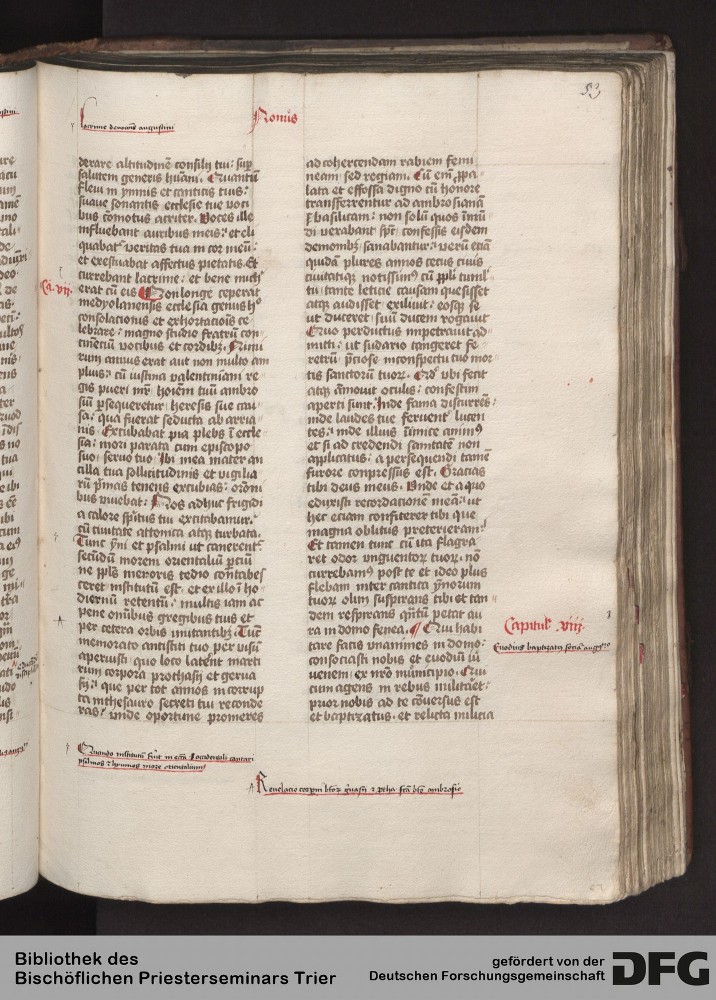 53
Nonus
Lacrime deuocõis augustini
derare altitudinẽ consilij tui: sup̱
salutem generis hũani. Quantũ
fleui in ymnis et canticis tuis:
suaue sonantis ecclesie tue voci
bus cõmotus acriter. Voces ille
influebant auribus meis: et eli
quabatᷣ veritas tua in cor meũ:
et exestuabat affectus pietatis. Et
currebant lacrime: et bene michi
erat cũ eis Non longe ceperat
Ca. vij.
medyolanensis ecclesia genus hꝰ
consolacionis et exhortaciõis ce
lebrare: magno studio fratrũ con
tinenciũ vocibus et cordibꝫ. Nimi
rum annus erat aut non multo am
plius: cũ iustina valentiniani re
gis pueri mr̃ hoiẽm tuũ ambro
siũ ꝑsequeretur heresis sue cau
sa: qua fuerat seducta ab arria
nis. Excubabat pia plebs ĩ eccle
sia: mori parata cum episcopo
suo seruo tuo Ibi mea mater an
cilla tua sollicitudinis et vigilia
rũ p̃mas tenens excubias: orõni
bus viuebat: Nos adhuc frigidi
a calore sp̃itus tui excitabamur:
cũ ciuitate attonica atqꝫ turbata.
Tunc ym̃i et psalmi ut canerentᷣ
secũdũ morem orientaliũ ꝑciũ
ne pp̃ls meroris tedio contabes
ceret institutũ est. et ex illo ĩ ho
diernũ retentũ: multis iam ac
pene omĩbus gregibus tuis et
per cetera orbis imitantibꝫ. Tũc
memorato antistiti tuo per visũ
aperuisti quo loco latẽnt marti
rum corpora prothasij et gerua
sij: que per tot annos incorrup
ta in thesauro secreti tui reconde
ras: vnde oportune promeres
Quando institutũ fuit in eccĩa occidentali cantari
psalmos et hymnos more orientaliũ
ad cohercendam rabiem femi
neam sed regiam. Cũ em̃ ꝓpa
lata et effossa digno cũ honore
transferrentur ad ambrosianã
ꝑ basilicam: non solũ quos ĩmũ
di vexabant spũs confessis eisdem
demonibꝫ sanabantur: verũ etiã
quidã plures annos cecus ciuis
ciuitatisqꝫ notissimꝰ cũ ppli tumlᷣ
tu: tante leticie causam quesisset
atqꝫ audisset exiliuit: eosqꝫ se
ut duceret suũ ducem rogauit
Quo perductus impetrauit ad
mitti: ut sudario tangeret fe
retrũ p̃ciose in conspectu tuo mor
tis sanctorũ tuorꝫ. Qd̃ vbi fecit
atqꝫ am̃ouit oculis: confestim
aperti sunt. Inde fama discurrẽs:
inde laudes tue feruentᷣ lucen
tes: inde illius ĩimice animꝰ
et si ad credendi sanitatẽ non
applicatus: a persequendi tamẽ
furore conpressus est. Gracias
tibi deus meus. Vnde et a quo
eduxisti recordationẽ meã: ut
hec eciam confiterer tibi que
magna oblitus preterieram?
Et tamen tunc cũ ita flagra
ret odor vnguentorꝫ tuorꝫ: nõ
currebamꝰ post te et ideo plus
flebam inter cantica ym̃orum
tuorꝫ olim suspirans tibi et tan
dem respirans qñtũ petat au
ra in domo fenea. Qui habi
Capitulũ viij.
tare facis vnanimes in domo:
Euodius baptizatꝰ sociaᷣ augꝰno
consociasti nobis et euodiũ iu
uenem ex nr̃o municipio. Qui
cum agens in rebus militaret:
prior nobis ad te cõuersus est
et baptizatus. et relicta milicia
Reuelacio corpm btõrꝫ geruasij et ptha. fc̃ã btõ ambrosio
Bibliothek des
Bischöflichen Priesterseminars Trier
gefördert von der
Deutschen Forschungsgemeinschaft
DFG